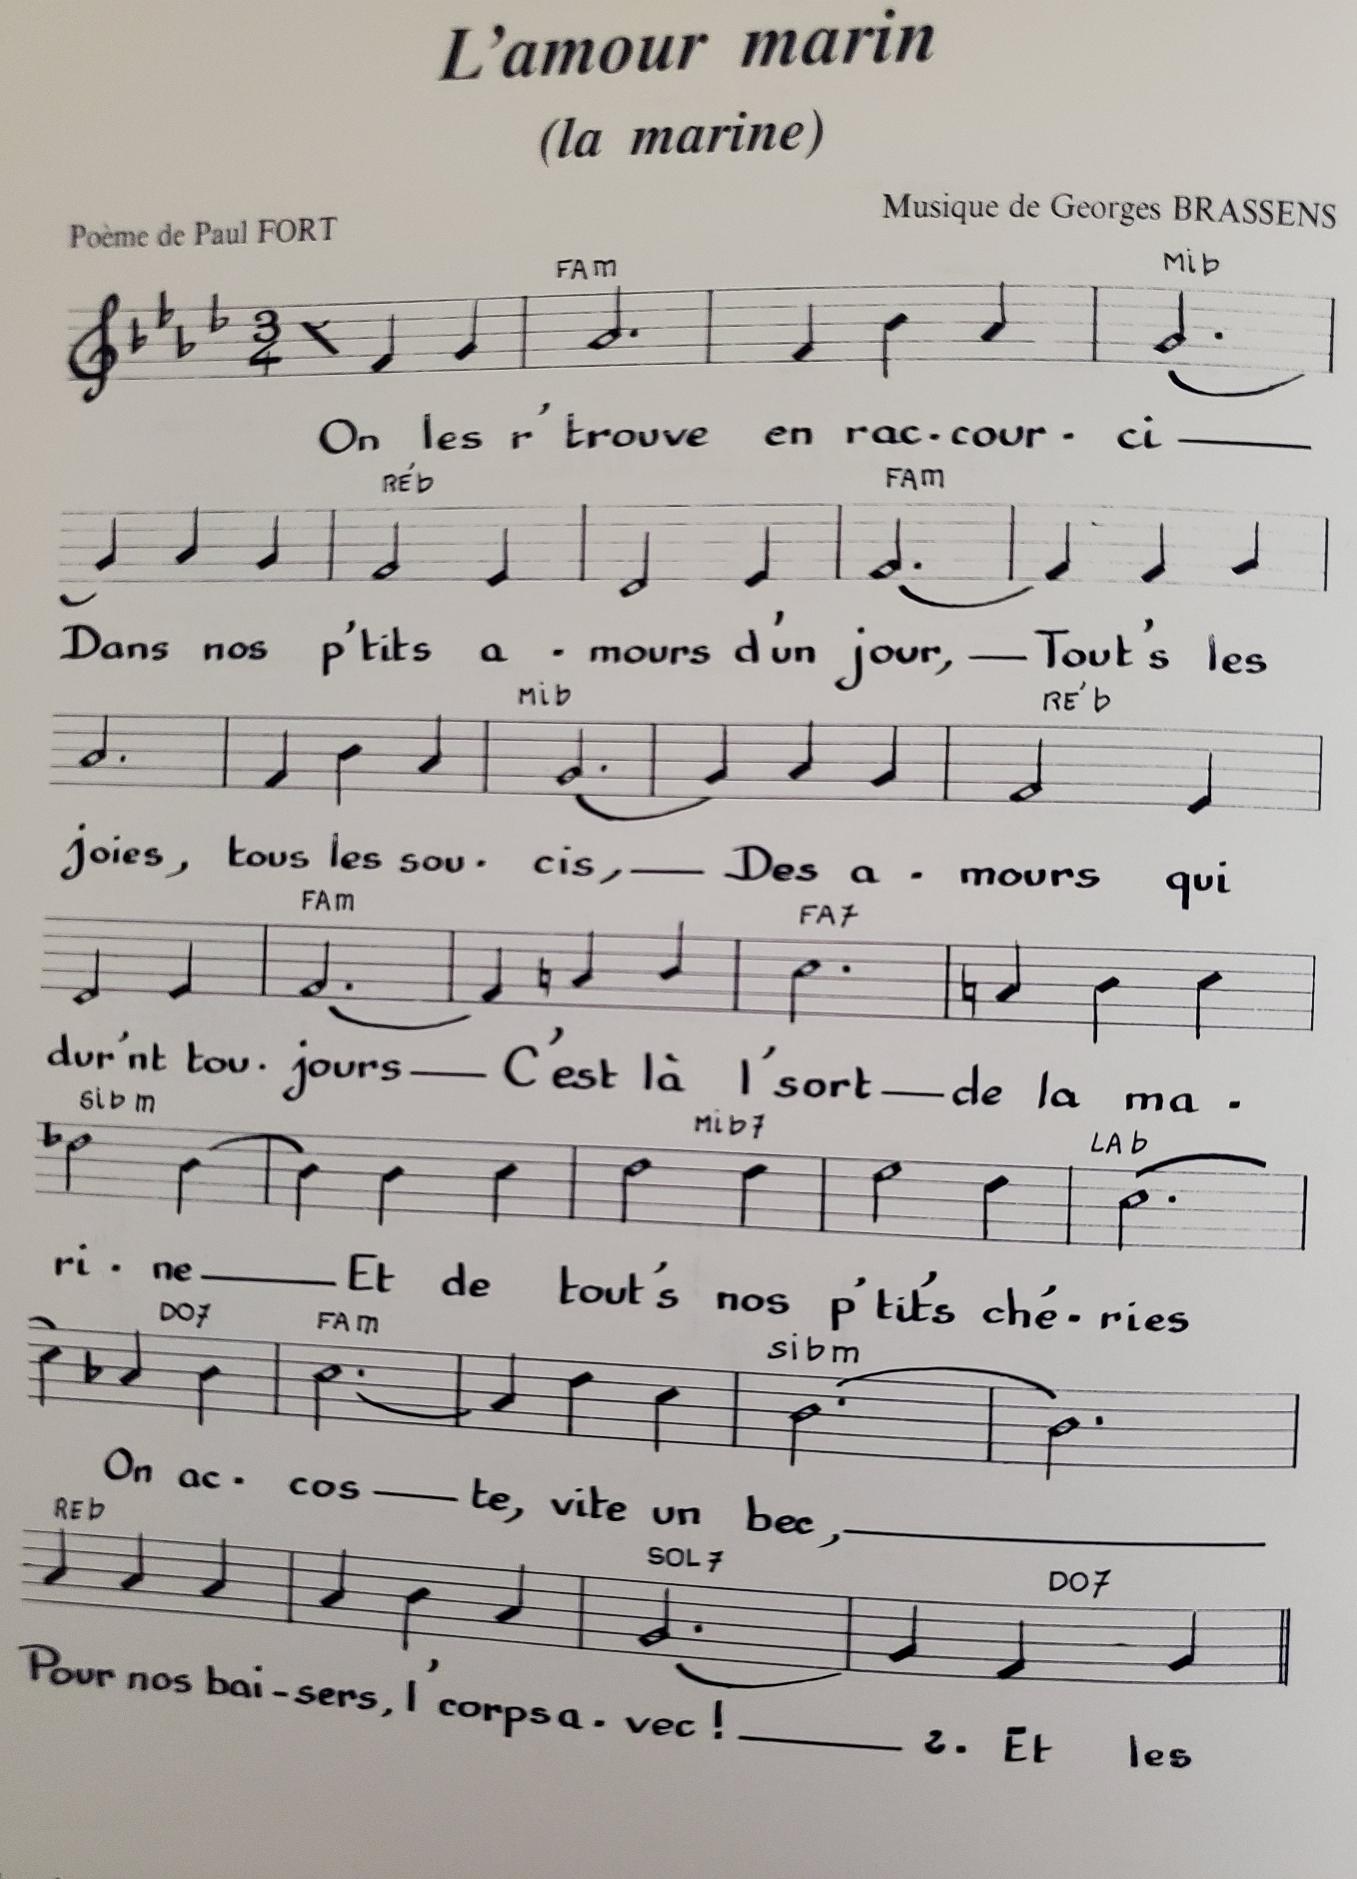 L'amour marin
(la marine)
Poème de Paul FORT
Musique de Georges BRASSENS
FAm Mib
3
4
On les r'trouve en rac-cour- ci
RÉb FAm
Dans nos p'tits a - mours d'un jour, Tout's les
Mib RÉ'b
joies, tous les sou- cis, Des a - mours qui
FAm FA7
dur'nt tou- jours C'est là l'sort de la ma -
Sibm Mib7 LAb
ri - ne Et de tout's nos p'tit's ché-ries
DO7 FAm sibm
On ac- cos te, vite un bec,
REb SOL7 DO7
Pour nos bai-sers, l'corps a- vec ! 2. Et les